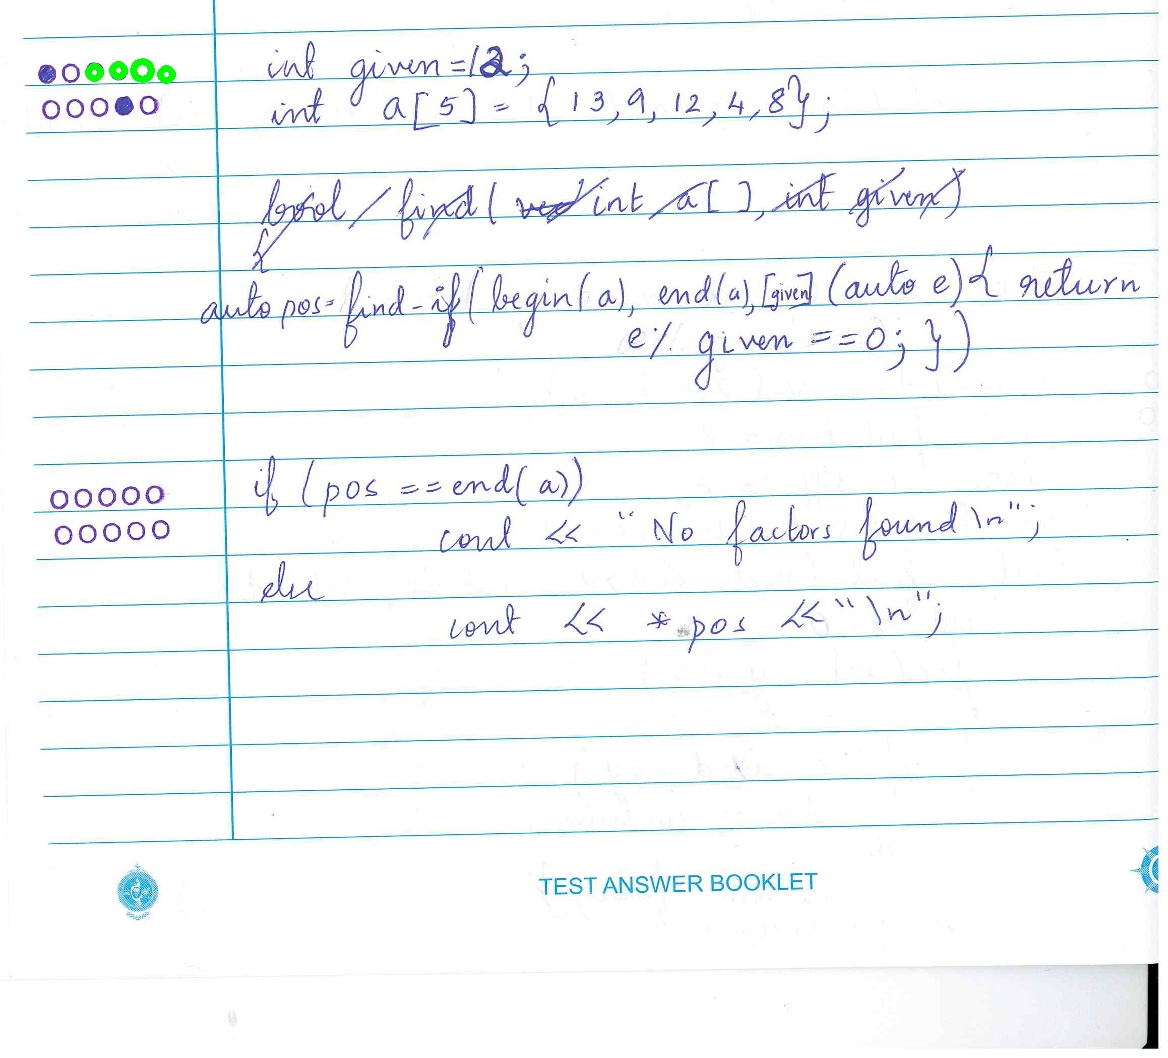 int given=12;
int a[5] = {13,9,12,4,8};
bool find( int a[ ], int given)
{
auto pos= find-if(begin(a), end(a),[given] (auto e){ return
e% given ==0; })
if (pos ==end(a))
cout << "No factors found \n";
else
cout << *pos <<"\n";
TEST ANSWER BOOKLET